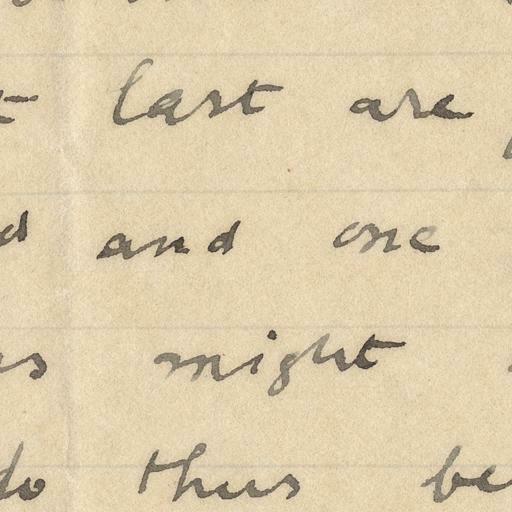 t last are
d and one
s might
do thus be